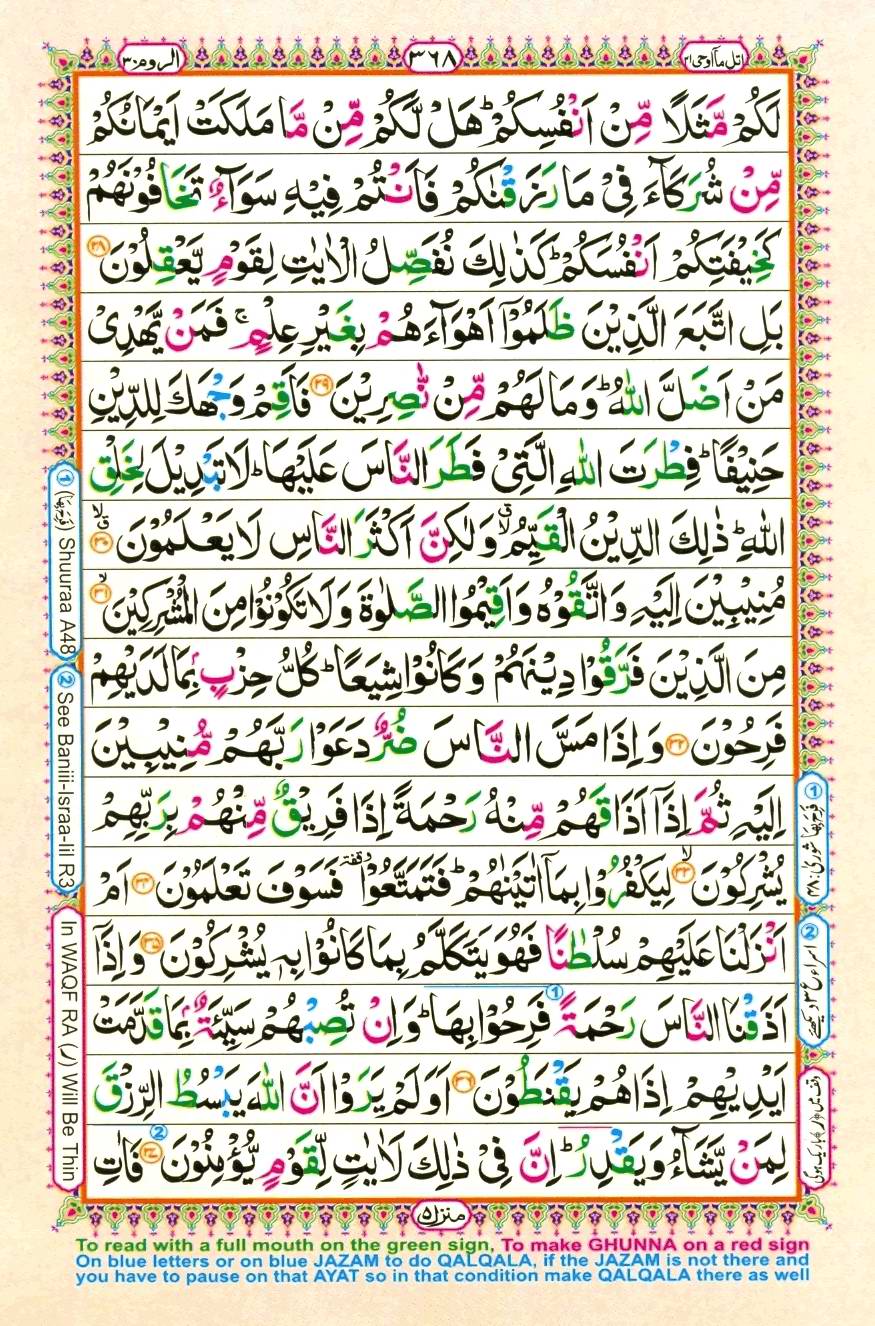 اتل مآ اوحی ۲۱
۳۶۸
الروم ۳۰
لَكُمْ مَّثَلًا مِّنْ اَنْفُسِكُمْ ؕ هَلْ لَّكُمْ مِّنْ مَّا مَلَكَتْ اَيْمَانُكُمْ
مِّنْ شُرَكَآءَ فِىْ مَا رَزَقْنٰكُمْ فَاَنْتُمْ فِيْهِ سَوَآءٌ تَخَافُوْنَهُمْ
كَخِيْفَتِكُمْ اَنْفُسَكُمْ ؕ كَذٰلِكَ نُفَصِّلُ الْاٰيٰتِ لِقَوْمٍ يَّعْقِلُوْنَ ۲۸
بَلِ اتَّبَعَ الَّذِيْنَ ظَلَمُوْۤا اَهْوَآءَهُمْ بِغَيْرِ عِلْمٍ ۚ فَمَنْ يَّهْدِىْ
مَنْ اَضَلَّ اللّٰهُ ؕ وَمَا لَهُمْ مِّنْ نّٰصِرِيْنَ ۲۹ فَاَقِمْ وَجْهَكَ لِلدِّيْنِ
حَنِيْفًا ؕ فِطْرَتَ اللّٰهِ الَّتِىْ فَطَرَ النَّاسَ عَلَيْهَا ؕ لَا تَبْدِيْلَ لِخَلْقِ
اللّٰهِ ؕ ذٰلِكَ الدِّيْنُ الْقَيِّمُ ۙۗ وَلٰكِنَّ اَكْثَرَ النَّاسِ لَا يَعْلَمُوْنَ ۳۰
مُنِيْبِيْنَ اِلَيْهِ وَاتَّقُوْهُ وَاَقِيْمُوا الصَّلٰوةَ وَلَا تَكُوْنُوْا مِنَ الْمُشْرِكِيْنَ ۳۱
مِنَ الَّذِيْنَ فَرَّقُوْا دِيْنَهُمْ وَكَانُوْا شِيَعًا ؕ كُلُّ حِزْبٍۭ بِمَا لَدَيْهِمْ
فَرِحُوْنَ ۳۲ وَاِذَا مَسَّ النَّاسَ ضُرٌّ دَعَوْا رَبَّهُمْ مُّنِيْبِيْنَ
اِلَيْهِ ثُمَّ اِذَاۤ اَذَاقَهُمْ مِّنْهُ رَحْمَةً اِذَا فَرِيْقٌ مِّنْهُمْ بِرَبِّهِمْ
يُشْرِكُوْنَ ۳۳ لِيَكْفُرُوْا بِمَاۤ اٰتَيْنٰهُمْ ؕ فَتَمَتَّعُوْا وقفة فَسَوْفَ تَعْلَمُوْنَ ۳۴ اَمْ
اَنْزَلْنَا عَلَيْهِمْ سُلْطٰنًا فَهُوَ يَتَكَلَّمُ بِمَا كَانُوْا بِهٖ يُشْرِكُوْنَ ۳۵ وَاِذَاۤ
اَذَقْنَا النَّاسَ رَحْمَةً فَرِحُوْا بِهَا ؕ وَاِنْ تُصِبْهُمْ سَيِّئَةٌۢ بِمَا قَدَّمَتْ
اَيْدِيْهِمْ اِذَا هُمْ يَقْنَطُوْنَ ۳۶ اَوَلَمْ يَرَوْا اَنَّ اللّٰهَ يَبْسُطُ الرِّزْقَ
لِمَنْ يَّشَآءُ وَيَقْدِرُ ؕ اِنَّ فِىْ ذٰلِكَ لَاٰيٰتٍ لِّقَوْمٍ يُّؤْمِنُوْنَ ۳۷ فَاٰتِ
منزل ۵
1 (فرح بها) Shuuraa A48
2 See Baniii-Israa-Iil R3
In WAQF RA (ر) Will Be Thin
1 فرح بها شوریٰ ۴۸
2 اسراء ع ۳ دیکھئے
وقف میں (ر) باریک ہوگی
To read with a full mouth on the green sign, To make GHUNNA on a red sign
On blue letters or on blue JAZAM to do QALQALA, if the JAZAM is not there and
you have to pause on that AYAT so in that condition make QALQALA there as well